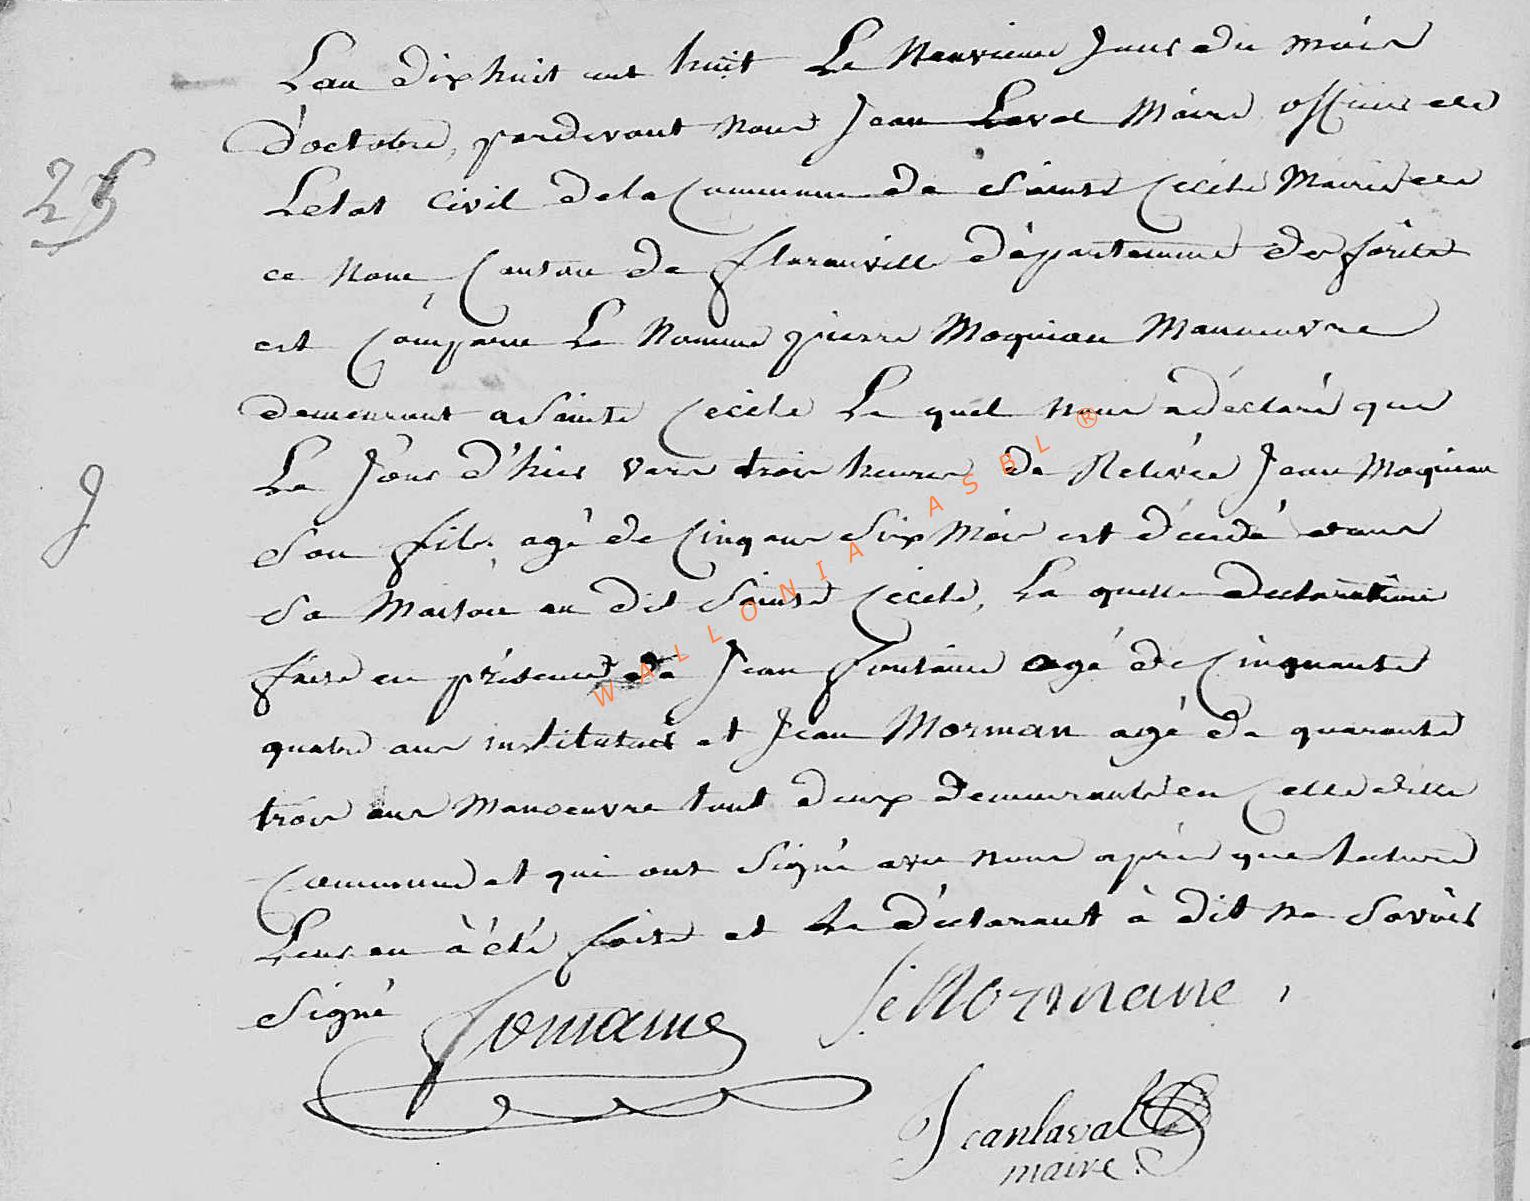 L'an dix huit cent huit Le Neuvieme Jour du mois
d'octobre, pardevant nous Jean Laval Maire officier de
Letat Civil de la Commune de Sainte Cecile Mairie de
25
ce nom, Canton de florenville département des forêts
est Comparu Le Nomme pierre Moquiau Manoeuvre
demeurant a Sainte Cecile Le quel nous a déclaré que
Le Jour d'hier vers trois heures de Relivée Jean Moquiau
J
Son fils, agé de Cinq ans Six Mois est décédé dans
Sa Maison au dit Sainte Cecile, La quelle declaration
faite en présence de Jean fontaine agé de Cinquante
quatre ans instituteur et Jean Morman agé de quarante
trois ans Manoeuvre tout deux demeurants en Cette ditte
Commune et qui ont Signé avec nous après que lecture
Leur en à été faite et Le déclarant à dit ne Savoir
Signé
fontaine
J e Mormane
Jean laval
maire
WALLONIA ASBL ®